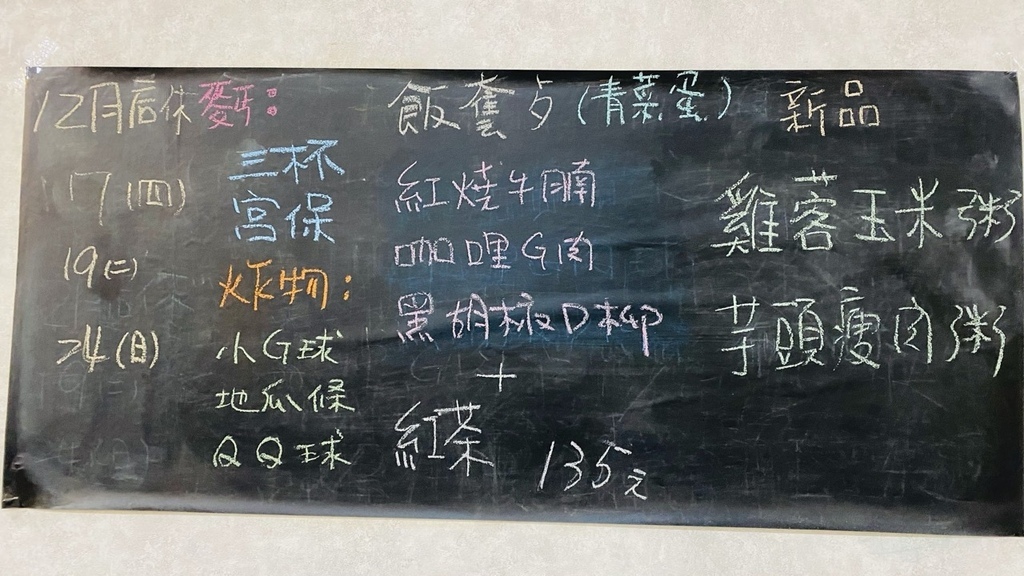 12月店休
17(四)
19(二)
24(日)
麥干:
三杯
宮保
炸物:
小G球
地瓜條
QQ球
飯套歺(青菜蛋)
紅燒牛腩
咖哩G肉
黑胡椒D
+
紅茶 135元
新品
雞蓉玉米粥
芋頭瘦肉粥